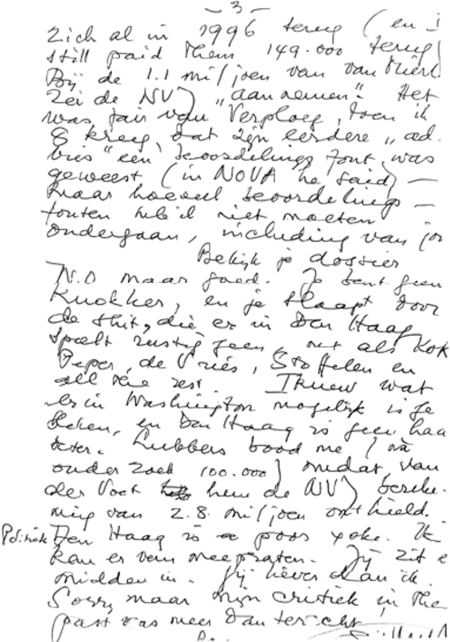 - 3 -
zich al in 1996 terug (en i
still paid them 149.000 terug)
Bij de 1.1 miljoen van van Mierl
zei de NVJ "aannemen". Het
was fair van Verploeg, toen ik
8 kreeg, dat zijn eerdere "ad
vies" een beoordelings fout was
geweest (in NOVA he said) —
maar hoeveel beoordelings —
fouten heb ik niet moeten
ondergaan, including van jou
Bekijk je dossier
N.O maar goed. Je bent geen
Knokker, en je slaapt door
de shit, die er in Den Haag
speelt rustig geen, net als Kok
Peper, de Vries, Stoffelen en
all the rest. I knew wat
er in Washington mogelijk is ge
bleken, en Den Haag is geen haar
beter. Lubbers bood me (na
onderzoek 100.000) omdat van
der Voet hem de NVJ bereke
ning van 2.8 miljoen onthield.
Politiek Den Haag is a poor yoke. Ik
kan er van meepraten. Jij zit e
midden in. Jij liever dan ik.
Sorry, maar mijn critiek in the
past was meer dan terecht.